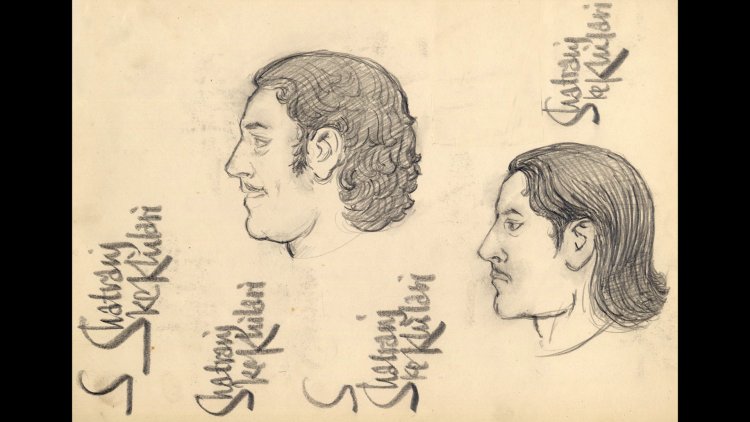 Shatranj
ke Khilari
S
Shatranj
ke Khilari
Shatranj
ke Khilari
S
Shatranj
ke Khilari